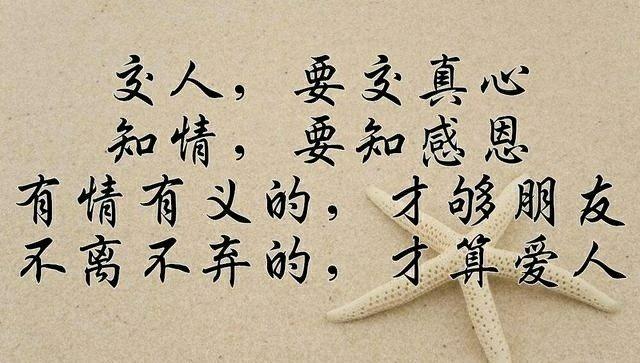 交人，要交真心
知情，要知感恩
有情有义的，才够朋友
不离不弃的，才算爱人